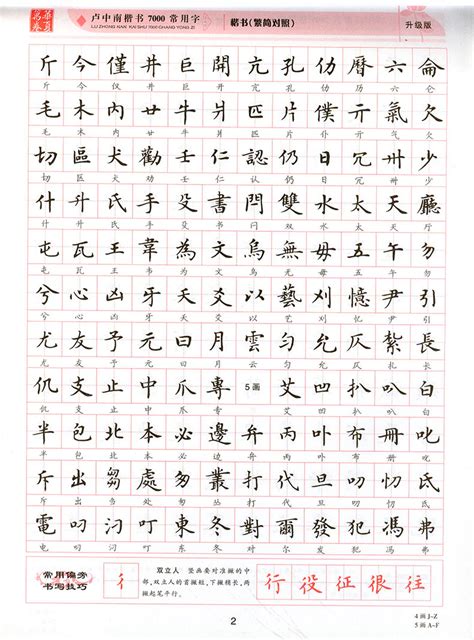 華夏萬卷
卢中南楷书 7000 常用字
LU ZHONG NAN KAI SHU 7000 CHANG YONG ZI
楷书(繁简对照)
升级版
斤 今 僅 井 巨 開 亢 孔 仂 曆 六 侖
斤 今 仅 井 巨 开 亢 孔 仂 历 六 仑
毛 木 内 廿 牛 爿 匹 片 僕 亓 氣 欠
毛 木 内 廿 牛 爿 匹 片 仆 亓 气 欠
切 區 犬 勸 壬 仁 認 仍 日 冗 卅 少
切 区 犬 劝 壬 仁 认 仍 日 冗 卅 少
什 升 氏 手 殳 書 閂 雙 水 太 天 廳
什 升 氏 手 殳 书 闩 双 水 太 天 厅
屯 瓦 王 韋 為 文 烏 無 毋 五 午 勿
屯 瓦 王 韦 为 文 乌 无 毋 五 午 勿
兮 心 凶 牙 夭 爻 以 藝 刈 憶 尹 引
兮 心 凶 牙 夭 爻 以 艺 刈 忆 尹 引
尤 友 予 元 曰 月 雲 匀 允 仄 紮 長
尤 友 予 元 曰 月 云 匀 允 仄 扎 长
仉 支 止 中 爪 專 5画 艾 凹 扒 叭 白
仉 支 止 中 爪 专 艾 凹 扒 叭 白
半 包 北 本 必 邊 弁 丙 卟 布 冊 叱
半 包 北 本 必 边 弁 丙 卟 布 册 叱
斥 出 芻 處 匆 叢 打 代 旦 叨 氹 氐
斥 出 刍 处 匆 丛 打 代 旦 叨 氹 氐
電 叼 汈 叮 東 冬 對 爾 發 犯 馮 弗
电 叼 汈 叮 东 冬 对 尔 发 犯 冯 弗
常用偏旁
书写技巧
彳
双立人 竖画要对准撇的中
部,双立人的首撇短,下撇稍长,两
撇起笔平行。
行 役 征 很 往
2
4画J-Z
5画A-F